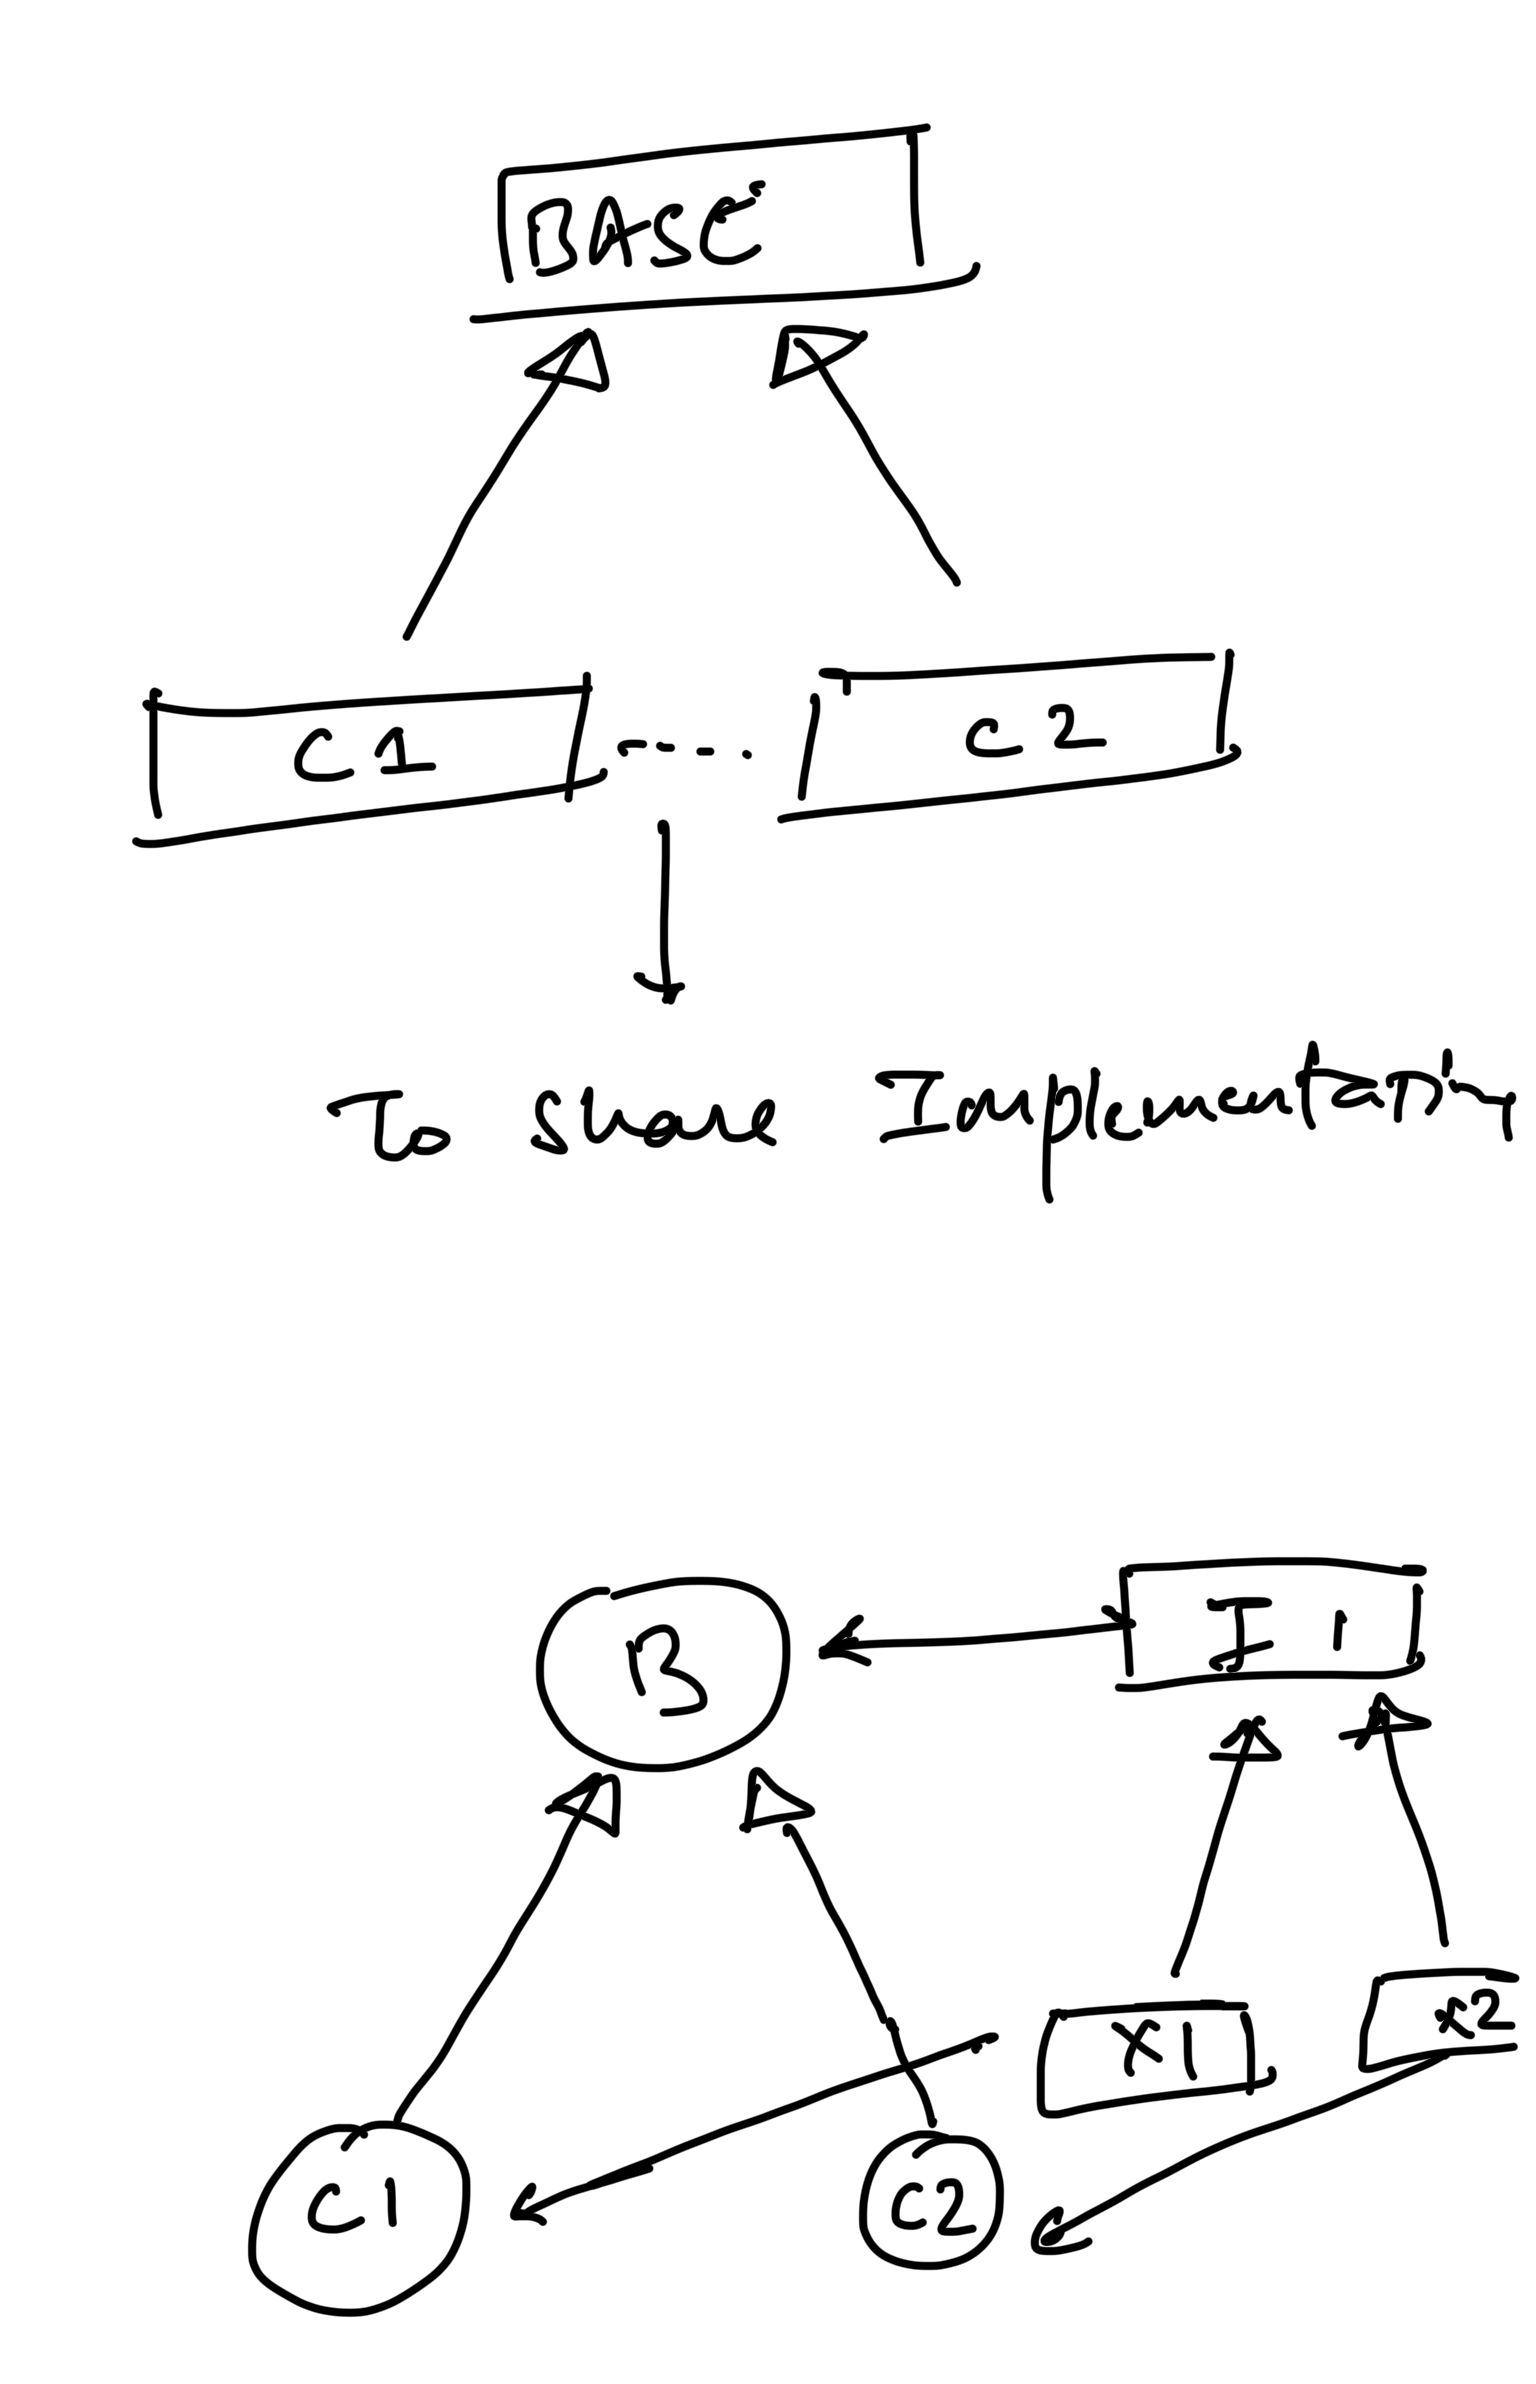 BASE
C1 C2
To Share Implementation
B I1
X1 X2
C1 C2